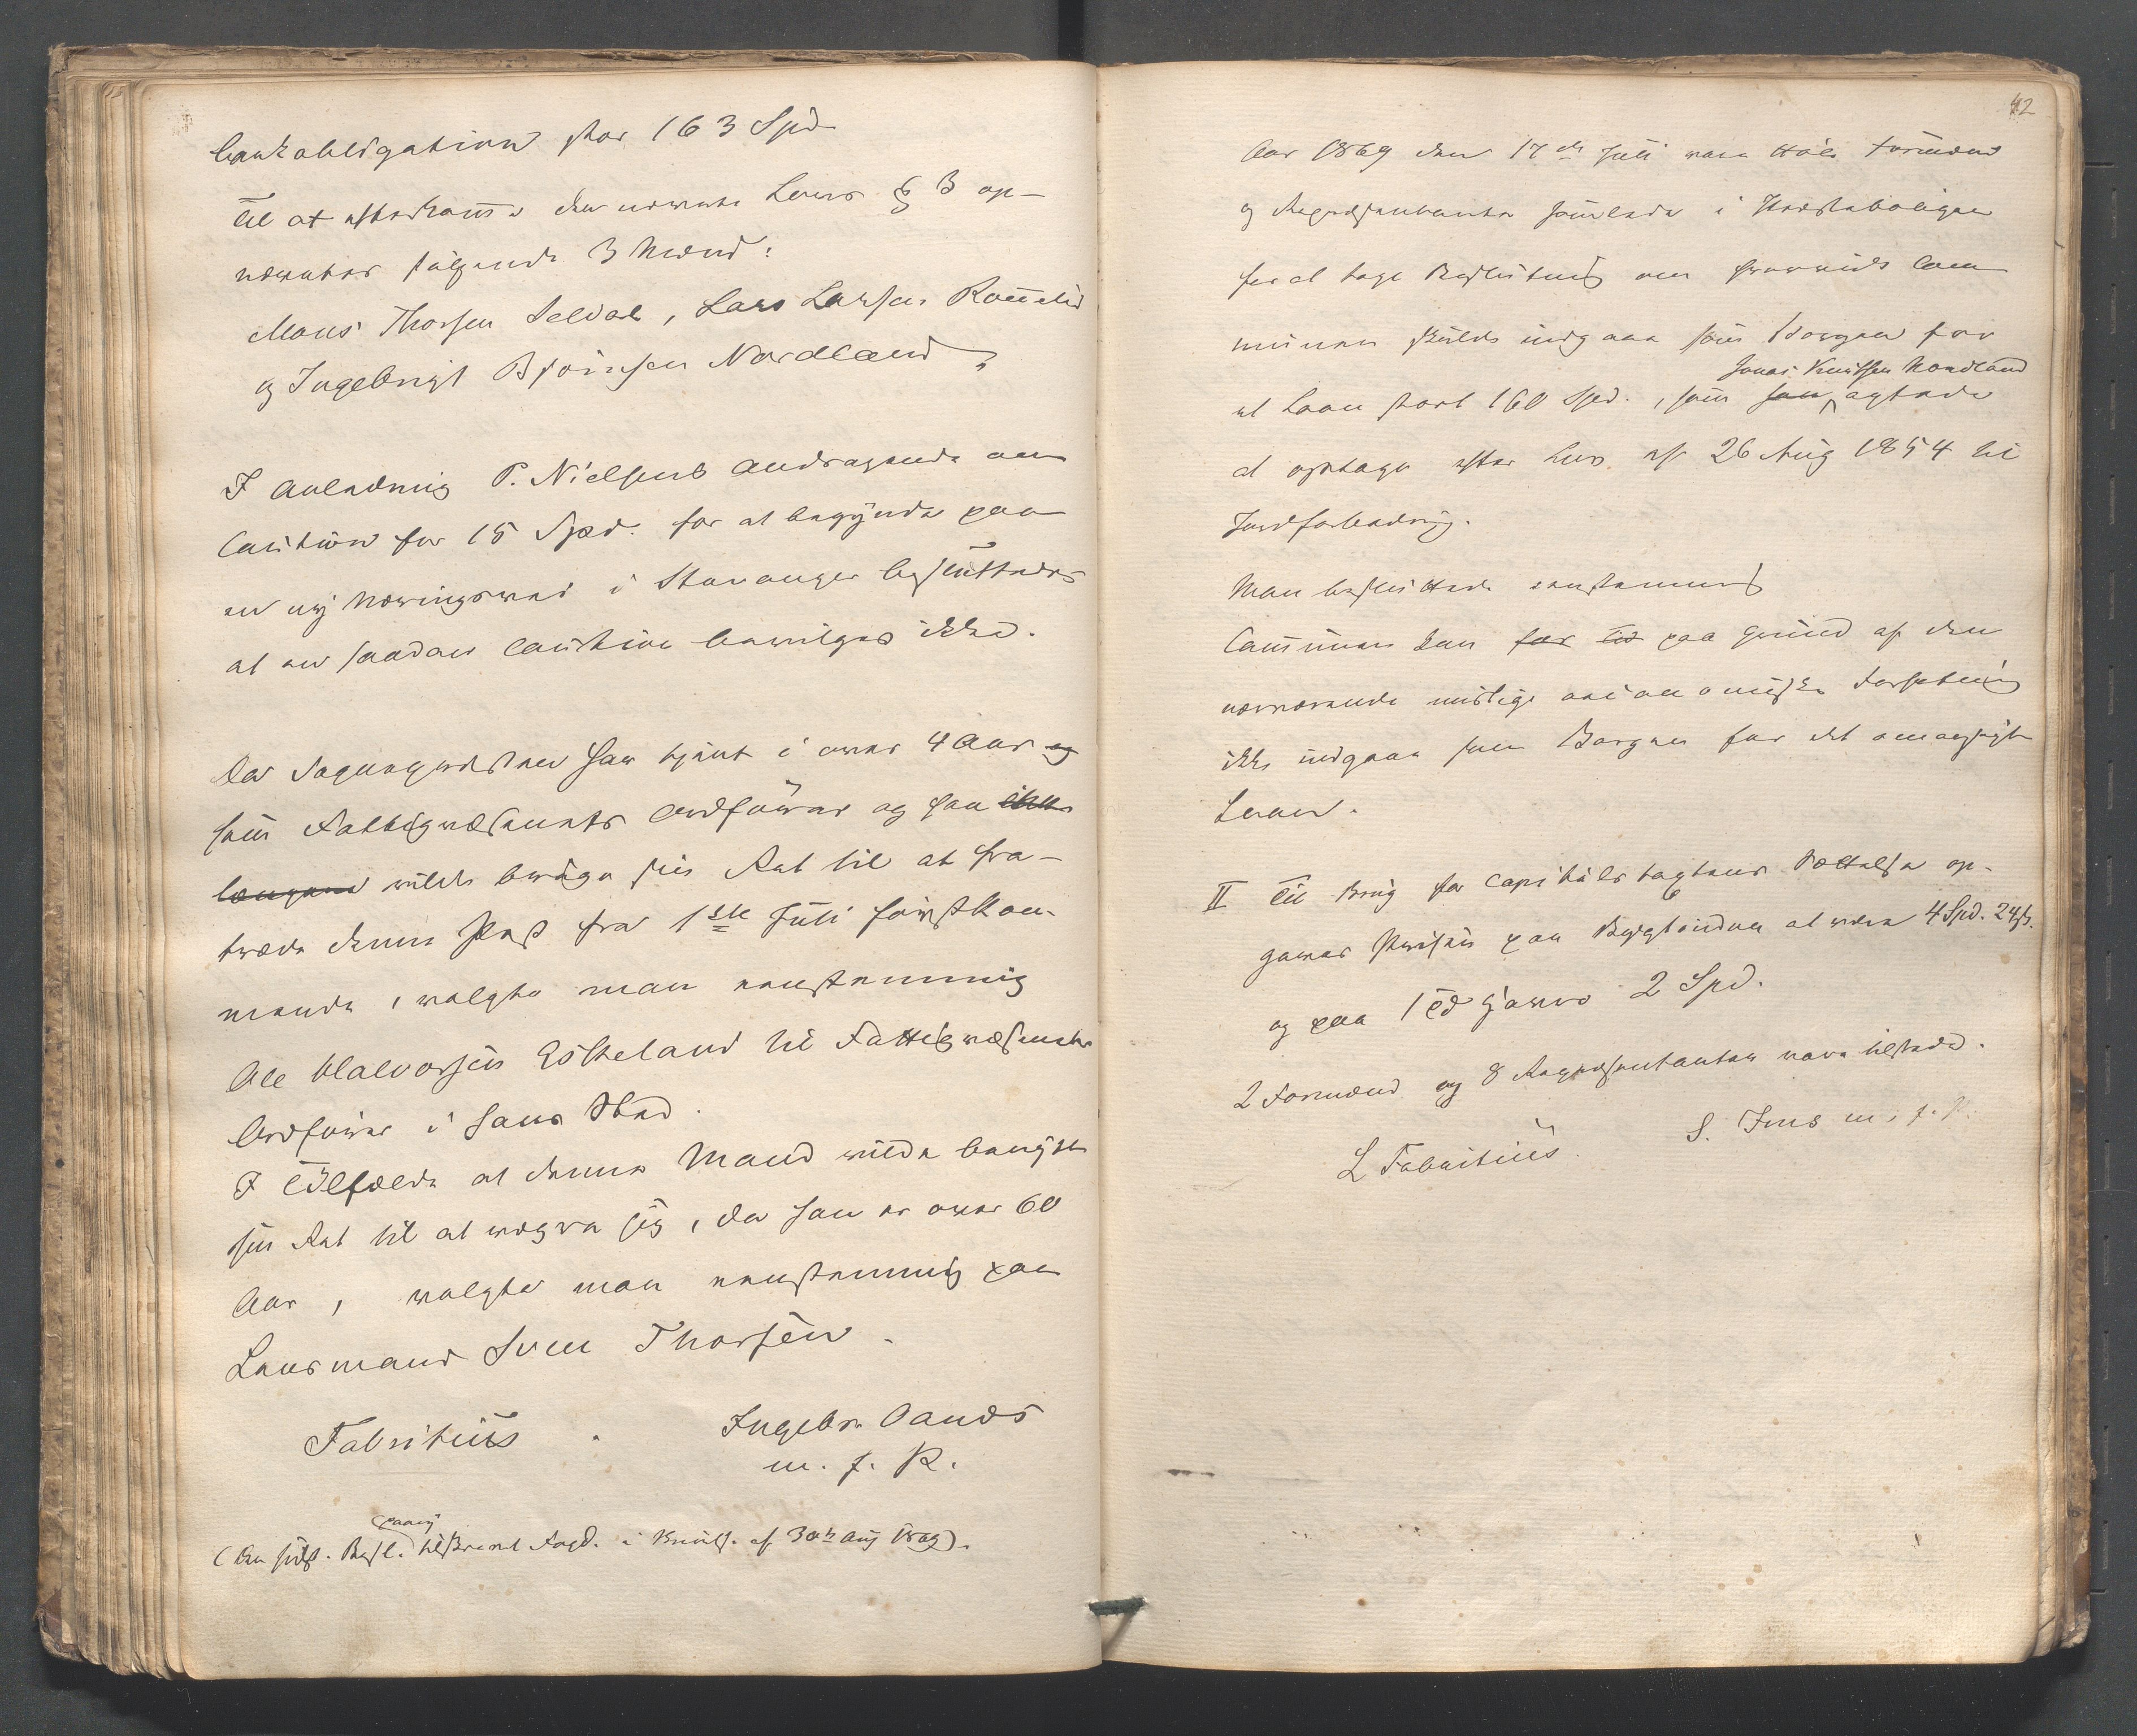 bankobligation stor 163 Spd
Til at efterkomme den nævnte Lovs § 3 op-
nævntes følgende 3 Mænd:
Mons Thorsen Seldal, Lars Larsen Romelid
og Ingebrigt Bjørnsen Nordland
I Anledning P. Nielsens Andragende om
Caution for 15 Spd. for at begynde paa
en ny Næringsvei i Stavanger besluttedes
at en saadan Caution bevilges ikke.
Da Sognepræsten har tjent i over 4 Aar og
som Fattigvæsenets Ordfører og han ikke
længere vilde bruge sin Ret til at fra-
træde denne Post fra 1ste Juli førstkom-
mende, valgte man eenstemmig
Ole Halvorsen Eskeland til Fattigvæsenets
Ordfører i hans Sted.
I Tilfælde at denne Mand vilde benytte
sin Ret til at vægre sig, da han er over 60
Aar, valgte man eenstemmig paa
Lensmand Sven Thorsen.
Fabritius. Ingebr. Aands
m. f. P.
paany
(Den sidst. Besl. tilstræmt Fogd. i af 30te Aug 1869).
42
Aar 1869 den 17de Juli vare Høle Formænd
og Repræsentanter samlede i Præsteboligen
for at tage Beslutning om hvorvidt Com
munen skulde indgaae som Borgen for
Jonas Knudsen Nordland
et Laan stort 160 Spd., som han agtede
at optage efter Lov af 26 Aug 1854 til
Jordforbedring.
Man besluttede eenstemmig
Communen kan for Tid paa Grund af den
nærværende mislige oeconomiske Forfatning
ikke indgaae som Borgen for det omspurgte
Laan.
II Til Brug for Capitelstagtens Sættelse op-
gaves Prisen paa Bygtønden at være 4 Spd. 24 ß.
og paa 1 Td Havre 2 Spd.
2 Formænd og 8 Repræsentanter vare tilstede.
L Fabritius. S. Ims m. f. P.